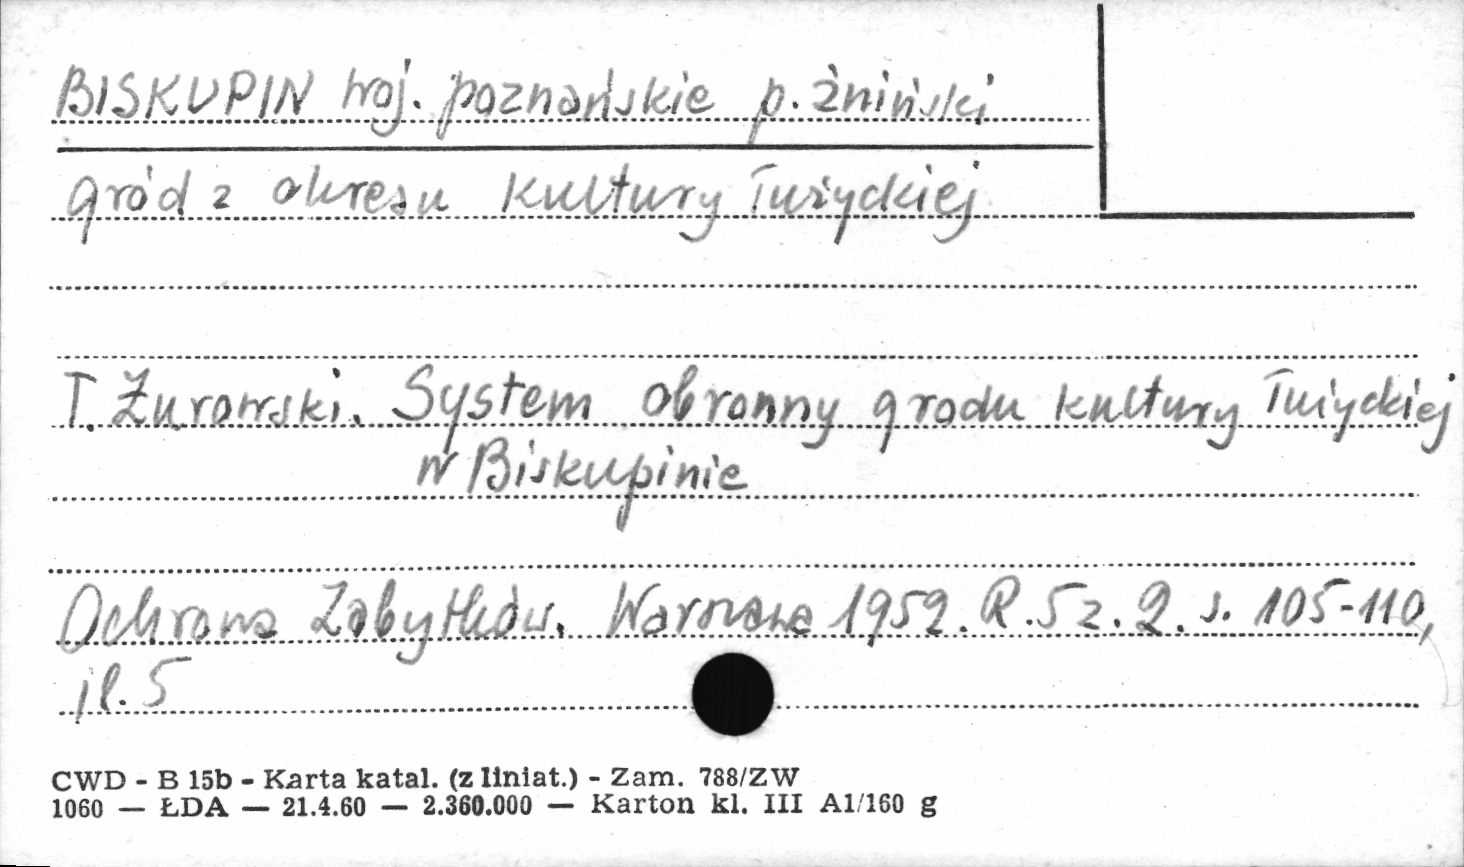 BISKUPIN woj. poznańskie p. żniński
gród z okresu kultury łużyckiej
T. Żurowski. System obronny grodu kultury łużyckiej
w Biskupinie
Ochrona Zabytków. Warszawa 1952. R. 5 z. 2. s. 105-110,
il. 5
CWD - B 15b - Karta katal. (z liniat.) - Zam. 788/ZW
1060 — ŁDA — 21.4.60 — 2.360.000 — Karton kl. III A1/160 g